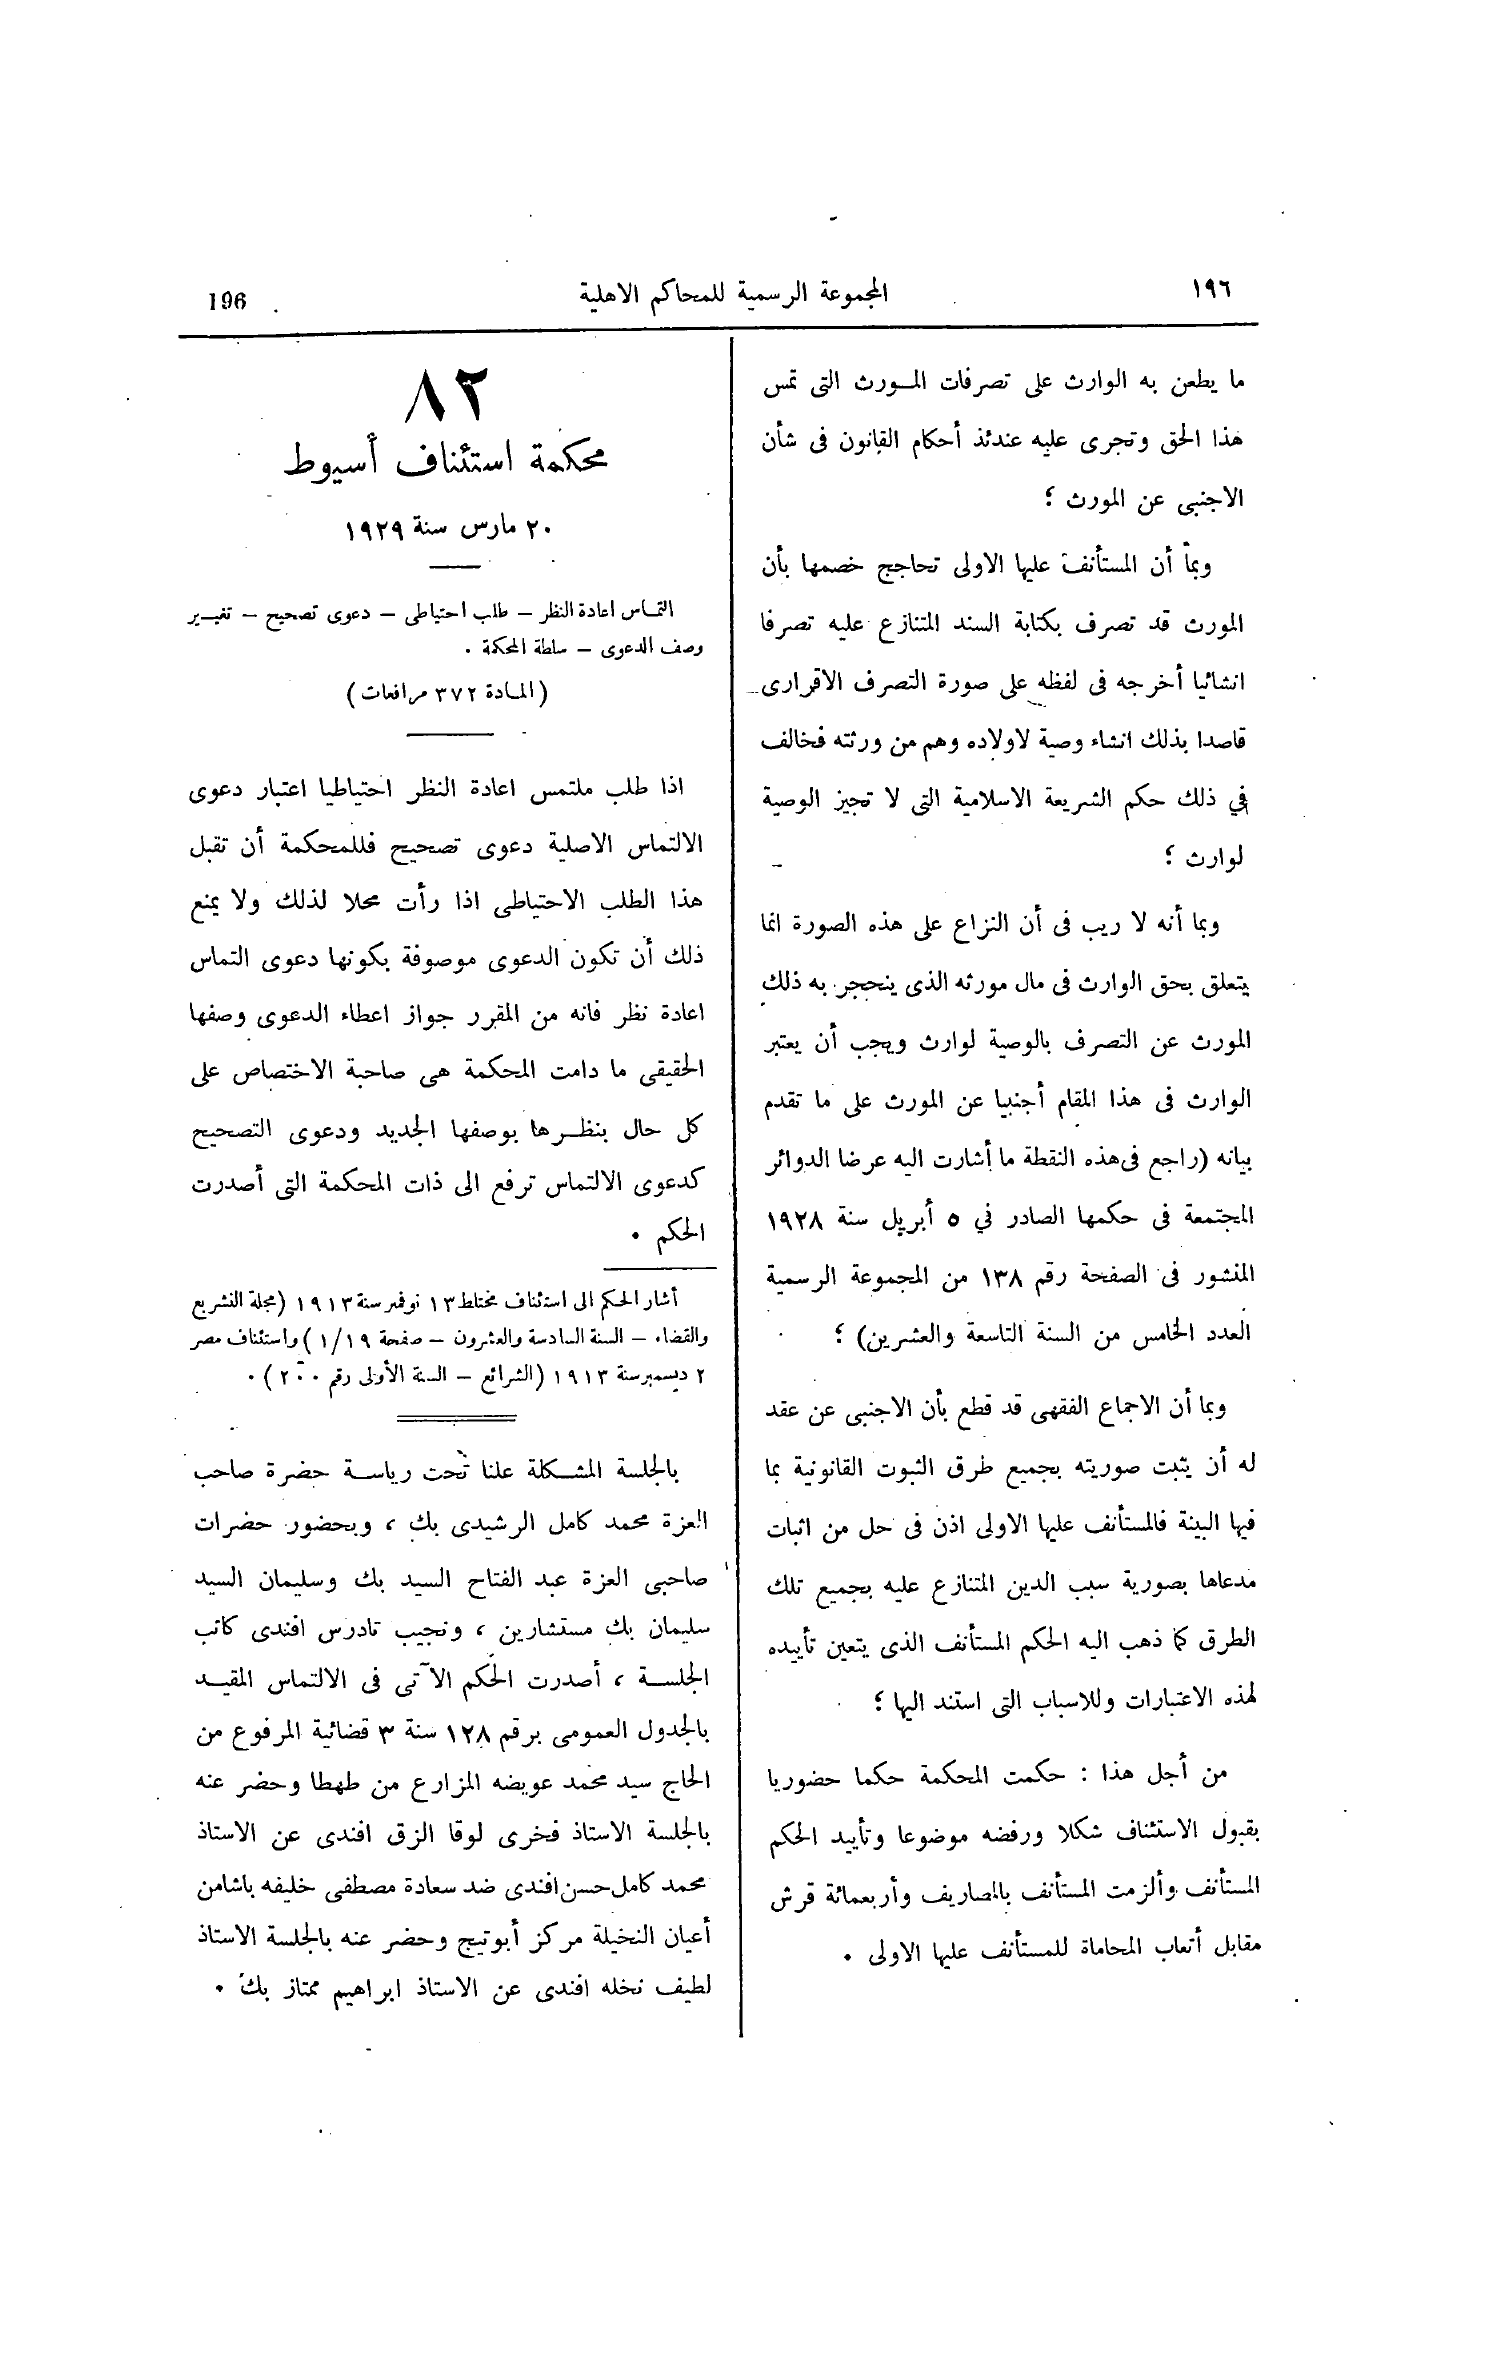 ١٩٦
المجموعة الرسمية للمحاكم الاهلية
196
ما يطعن به الوارث على تصرفات المورث التى تمس
هذا الحق وتجرى عليه عندئذ أحكام القانون فى شأن
الاجنبى عن المورث ؛
وبما أن المستأنف عليها الاولى تحاجج خصمها بأن
المورث قد تصرف بكتابة السند المتنازع عليه تصرفا
انشائيا أخرجه فى لفظه على صورة التصرف الاقرارى
قاصدا بذلك انشاء وصية لاولاده وهم من ورثته فخالف
في ذلك حكم الشريعة الاسلامية التى لا تجيز الوصية
لوارث ؛
وبما أنه لا ريب فى أن النزاع على هذه الصورة انما
يتعلق بحق الوارث فى مال مورثه الذى ينحجر به ذلك
المورث عن التصرف بالوصية لوارث ويجب أن يعتبر
الوارث فى هذا المقام أجنبيا عن المورث على ما تقدم
بيانه (راجع فى هذه النقطة ما أشارت اليه عرضا الدوائر
المجتمعة فى حكمها الصادر في ٥ أبريل سنة ١٩٢٨
المنشور فى الصفحة رقم ١٣٨ من المجموعة الرسمية
العدد الخامس من السنة التاسعة والعشرين) ؛
وبما أن الاجماع الفقهى قد قطع بأن الاجنبى عن عقد
له أن يثبت صوريته بجميع طرق الثبوت القانونية بما
فيها البينة فالمستأنف عليها الاولى اذن فى حل من اثبات
مدعاها بصورية سبب الدين المتنازع عليه بجميع تلك
الطرق كما ذهب اليه الحكم المستأنف الذى يتعين تأييده
لهذه الاعتبارات وللاسباب التى استند اليها ؛
من أجل هذا : حكمت المحكمة حكما حضوريا
بقبول الاستئناف شكلا ورفضه موضوعا وتأييد الحكم
المستأنف وألزمت المستأنف بالمصاريف وأربعمائة قرش
مقابل أتعاب المحاماة للمستأنف عليها الاولى .
٨٢
محكمة استئناف أسيوط
٢٠ مارس سنة ١٩٢٩
التماس اعادة النظر – طلب احتياطى – دعوى تصحيح – تغيير
وصف الدعوى – سلطة المحكمة .
(المادة ٣٧٢ مرافعات)
اذا طلب ملتمس اعادة النظر احتياطيا اعتبار دعوى
الالتماس الاصلية دعوى تصحيح فللمحكمة أن تقبل
هذا الطلب الاحتياطى اذا رأت محلا لذلك ولا يمنع
ذلك أن تكون الدعوى موصوفة بكونها دعوى التماس
اعادة نظر فانه من المقرر جواز اعطاء الدعوى وصفها
الحقيقى ما دامت المحكمة هى صاحبة الاختصاص على
كل حال بنظرها بوصفها الجديد ودعوى التصحيح
كدعوى الالتماس ترفع الى ذات المحكمة التى أصدرت
الحكم .
أشار الحكم الى استئناف مختلط ١٣ نوفمبر سنة ١٩١٣ (مجلة التشريع
والقضاء – السنة السادسة والعشرون – صفحة ١/١٩) واستئناف مصر
٢ ديسمبر سنة ١٩١٣ (الشرائع – السنة الأولى رقم ٢٠٠) .
بالجلسة المشكلة علنا تحت رياسة حضرة صاحب
العزة محمد كامل الرشيدى بك ، وبحضور حضرات
صاحبى العزة عبد الفتاح السيد بك وسليمان السيد
سليمان بك مستشارين ، ونجيب تادرس افندى كاتب
الجلسة ، أصدرت الحكم الآتى فى الالتماس المقيد
بالجدول العمومى برقم ١٢٨ سنة ٣ قضائية المرفوع من
الحاج سيد محمد عويضه المزارع من طهطا وحضر عنه
بالجلسة الاستاذ فخرى لوقا الزق افندى عن الاستاذ
محمد كامل حسن افندى ضد سعادة مصطفى خليفه باشا من
أعيان النخيلة مركز أبوتيج وحضر عنه بالجلسة الاستاذ
لطيف نخله افندى عن الاستاذ ابراهيم ممتاز بك .